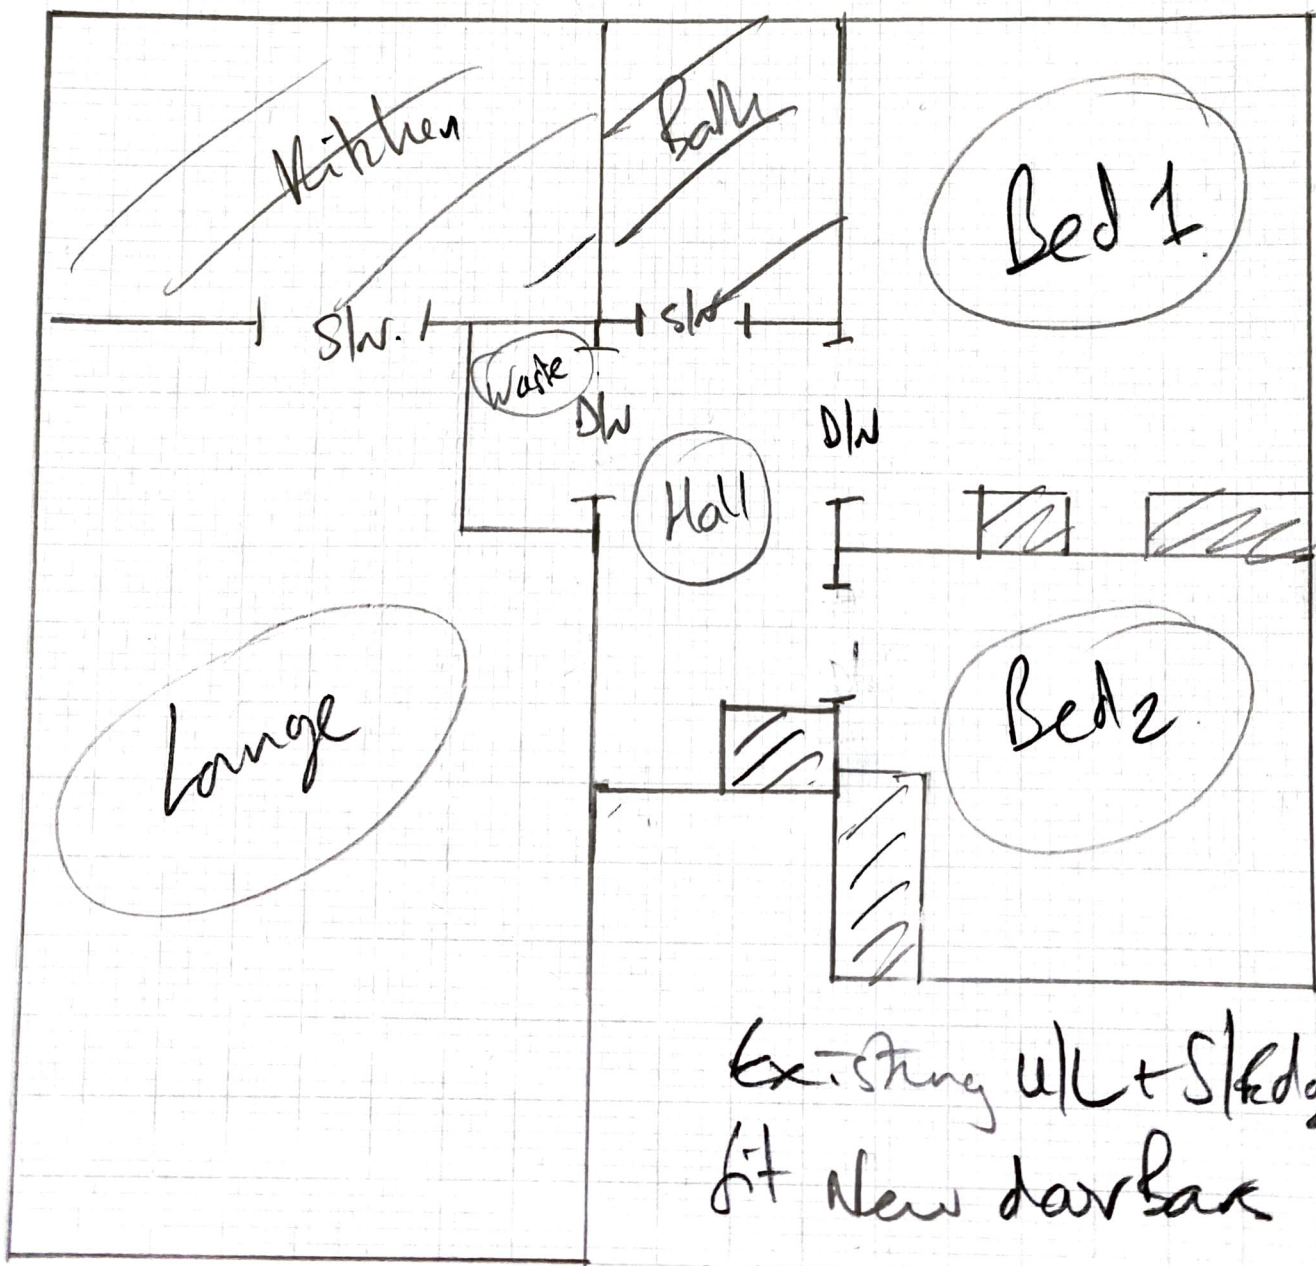 Kitchen
Bath
Bed 1
S/W.
S/W
Waste
D/W
D/W
Hall
Lounge
Bed 2
Existing U/L + S/Edg
fit New door Bars